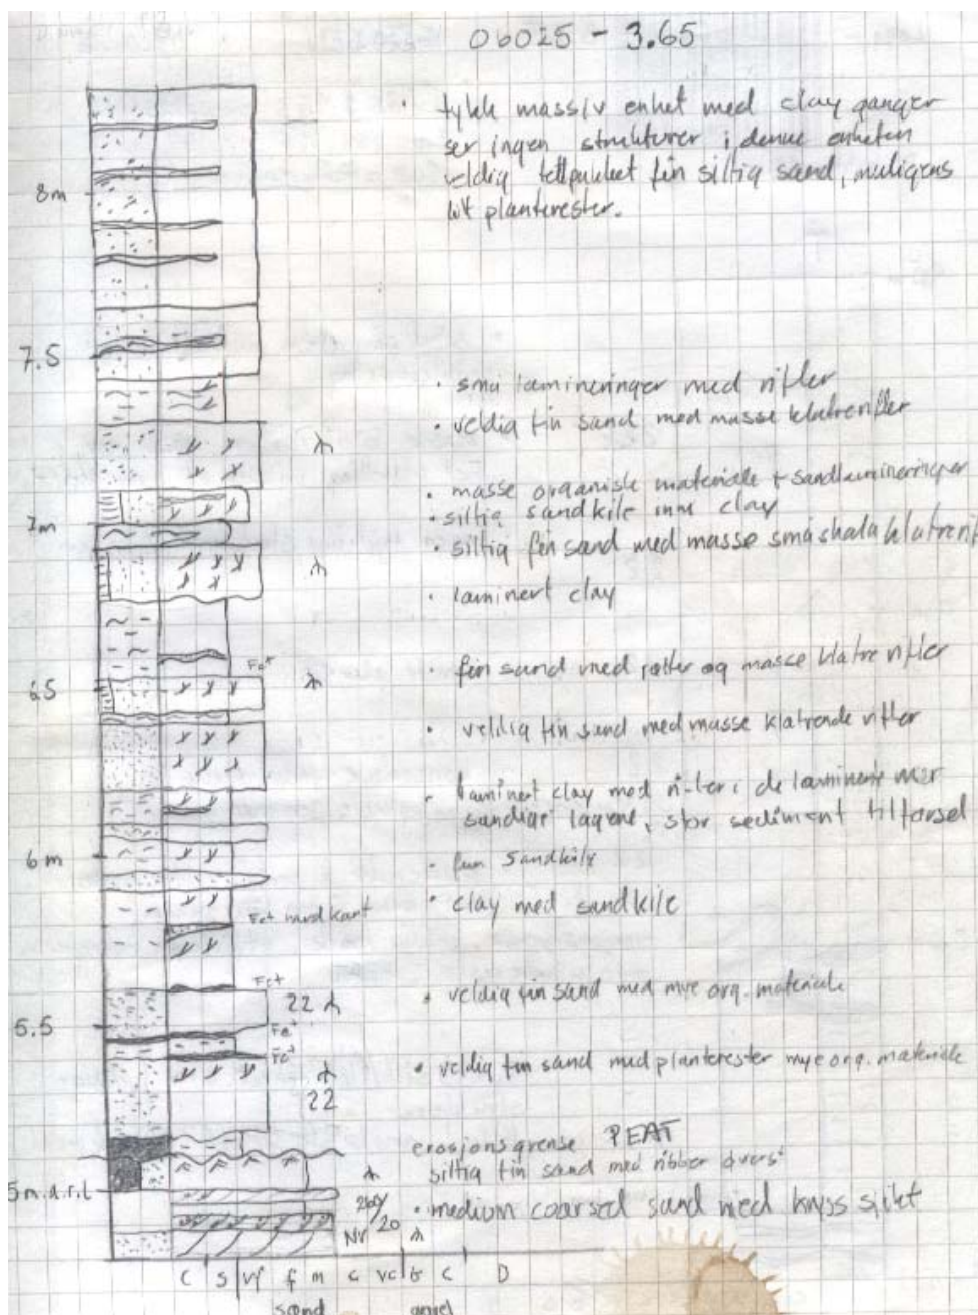 06025 - 3.65
· tykk massiv enhet med clay ganger
ser ingen strukturer i denne enheten
veldig tettpakket fin siltig sand, muligens
litt planterester.
8m
7.5
· små lamineringer med rifler
· veldig fin sand med masse klatrerifler
· masse organisk materiale + sandlamineringer
· siltig sandkile inni clay
7m
· siltig fin sand med masse småskala
· laminert clay
Fe+
· fin sand med røtter og masse klatrerifler
6.5
· veldig fin sand med masse klatrende rifler
· laminert clay med rifler i de laminerte mer
sandige lagene, stor sediment tilførsel
6m
· fin sandkile
· clay med sandkile
Fe+ rundkant
Fe+
· veldig fin sand med mye org. materiale
22
5.5
Fe+
Fe+
· veldig fin sand med planterester mye org. materiale
22
erosjonsgrense PEAT
siltig fin sand med ribber øverst
5m.a.r.l
· medium coarsed sand med kryss sjikt
260/20
NV
C S vf f m c vc C D
sand